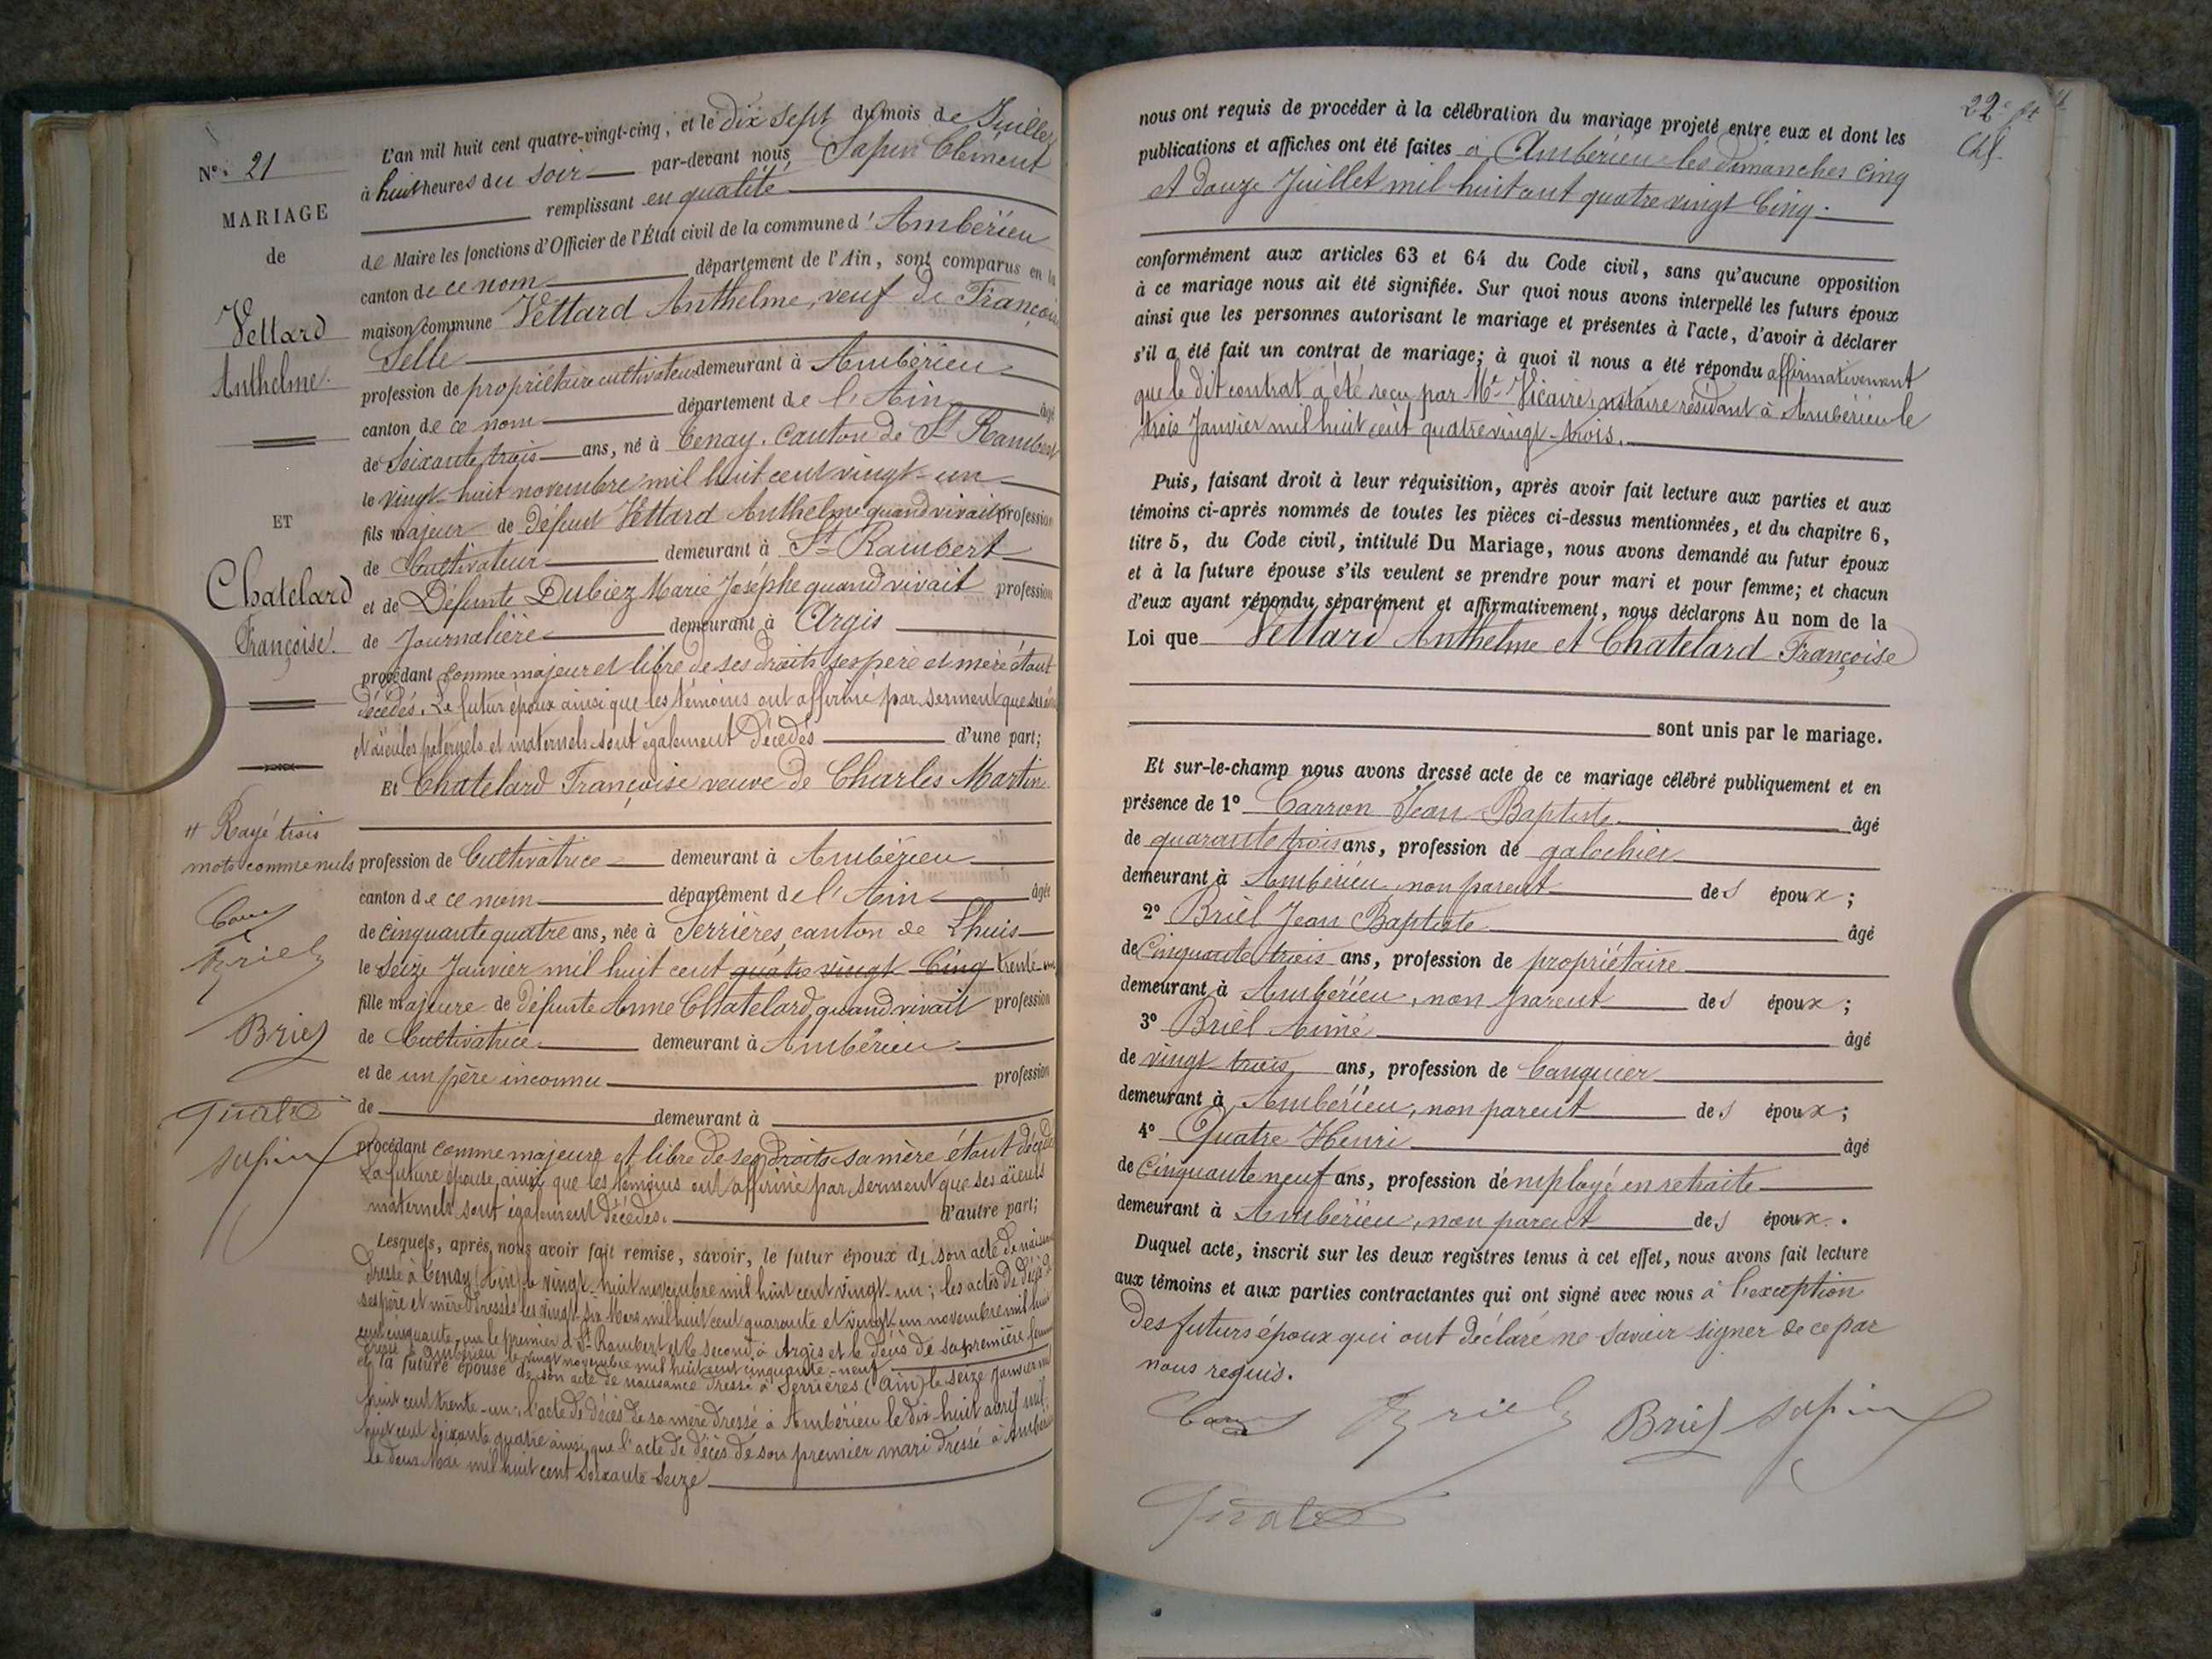 N° 21
MARIAGE
de
Vettard
Anthelme.
ET
Chatelard
Françoise.
Rayé trois
mots comme nuls
Briel
Briel
Quatre
Sapin
L'an mil huit cent quatre-vingt-cinq, et le dix sept du mois de Juillet
à huit heures du soir par-devant nous Sapin Clément
remplissant en qualité
de Maire les fonctions d'Officier de l'État civil de la commune d'Ambérieu
canton de ce nom département de l'Ain, sont comparus en la
maison commune Vettard Anthelme, veuf de Françoise
Selle
profession de propriétaire cultivateur demeurant à Ambérieu
canton de ce nom département de l'Ain âgé
de Soixante trois ans, né à Tenay, canton de St Rambert
le vingt-huit novembre mil huit cent vingt-un
fils majeur de défunt Vettard Anthelme quand vivait profession
de Cultivateur demeurant à St Rambert
et de Défunte Dubiez Marie Joséphe quand vivait profession
de Journalière demeurant à Argis
procédant comme majeur et libre de ses droits ses père et mère étant
décédés. Le futur époux ainsi que les témoins ont affirmé par serment que
et aïeules paternels et maternels sont également décédés d'une part;
Et Chatelard Françoise veuve de Charles Martin
profession de Cultivatrice demeurant à Ambérieu
canton de ce nom département de l'Ain âgée
de cinquante quatre ans, née à Serrières, canton de Lhuis
le seize Janvier mil huit cent quatre vingt Cinq trente-un
fille majeure de défunte Anne Chatelard, quand vivait profession
de Cultivatrice demeurant à Ambérieu
et de un père inconnu profession
de demeurant à
procédant comme majeure et libre de ses droits sa mère étant décédée
La future épouse ainsi que les témoins ont affirmé par serment que ses aïeuls
maternels sont également décédés. d'autre part;
Lesquels, après nous avoir fait remise, savoir, le futur époux de son acte de naissance
dressé à Tenay (Ain) le vingt-huit novembre mil huit cent vingt-un; les actes de décès de
ses père et mère dressés les vingt-six Mars mil huit cent quarante et vingt un novembre mil huit
cent cinquante-un le premier à St Rambert et le second à Argis et le décès de sa première femme
dressé à Ambérieu le vingt novembre mil huit cent cinquante-neuf
et la future épouse de son acte de naissance dressé à Serrières (Ain) le seize Janvier mil
huit cent trente-un; l'acte de décès de sa mère dressé à Ambérieu le dix-huit avril mil
huit cent soixante quatre ainsi que l'acte de décès de son premier mari dressé à Ambérieu
le deux Mai mil huit cent soixante-seize
22e
nous ont requis de procéder à la célébration du mariage projeté entre eux et dont les
publications et affiches ont été faites à Ambérieu les dimanches cinq
et douze Juillet mil huit cent quatre vingt Cinq.
conformément aux articles 63 et 64 du Code civil, sans qu'aucune opposition
à ce mariage nous ait été signifiée. Sur quoi nous avons interpellé les futurs époux
ainsi que les personnes autorisant le mariage et présentes à l'acte, d'avoir à déclarer
s'il a été fait un contrat de mariage; à quoi il nous a été répondu affirmativement
que le dit contrat a été reçu par Me Vicaire, notaire résidant à Ambérieu le
trois Janvier mil huit cent quatre vingt-trois.
Puis, faisant droit à leur réquisition, après avoir fait lecture aux parties et aux
témoins ci-après nommés de toutes les pièces ci-dessus mentionnées, et du chapitre 6,
titre 5, du Code civil, intitulé Du Mariage, nous avons demandé au futur époux
et à la future épouse s'ils veulent se prendre pour mari et pour femme; et chacun
d'eux ayant répondu séparément et affirmativement, nous déclarons Au nom de la
Loi que Vettard Anthelme et Chatelard Françoise
sont unis par le mariage.
Et sur-le-champ nous avons dressé acte de ce mariage célébré publiquement et en
présence de 1° Carron Jean Baptiste âgé
de quarante trois ans, profession de galochier
demeurant à Ambérieu, non parent des époux;
2° Briel Jean Baptiste âgé
de Cinquante trois ans, profession de propriétaire
demeurant à Ambérieu, non parent des époux;
3° Briel Aimé âgé
de vingt trois ans, profession de banquier
demeurant à Ambérieu, non parent des époux;
4° Quatre Henri âgé
de Cinquante neuf ans, profession d'employé en retraite
demeurant à Ambérieu, non parent des époux.
Duquel acte, inscrit sur les deux registres tenus à cet effet, nous avons fait lecture
aux témoins et aux parties contractantes qui ont signé avec nous à l'exception
des futurs époux qui ont déclaré ne savoir signer de ce par
nous requis.
Briel Briel Sapin
Quatre